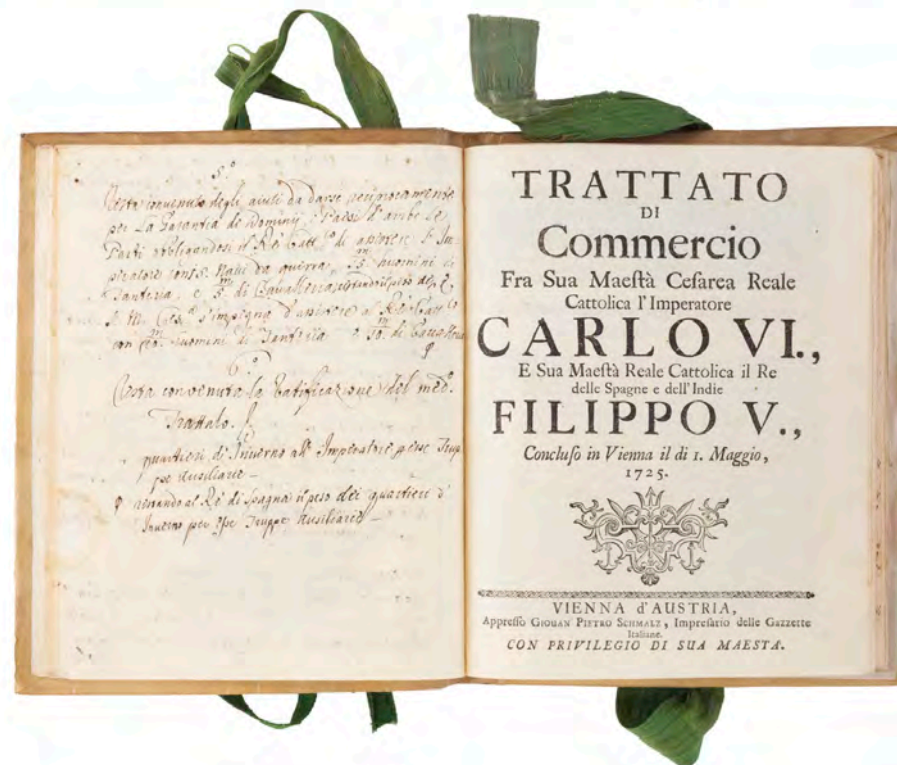 5.º
Resta convenuto degli aiuti da darse reciprocamente
per La Garantia de Dominij, e Paesi d'ambe le
Parti obbligandosi il Rè Catt.co di assistere l'Im-
peratore con 15. Navi da guerra, 15.m huomini di
Fanteria, e 5.m di Cavalleria
s'impegna d'assistere al Rè Catt.co
con 20.m huomini di Fanteria e 10.m di Cavalleria
6.º
Resta convenuta la Ratificazione del med.
Trattato.
quartieri di Inverno all'Imperatore per esse Trup-
pe Ausiliarie —
al Rè di Spagna il peso dei quartieri d'
Inverno per esse Truppe Ausiliarie —
TRATTATO
DI
Commercio
Fra Sua Maeſtà Ceſarea Reale
Cattolica l'Imperatore
CARLO VI.,
E Sua Maeſtà Reale Cattolica il Re
delle Spagne e dell'Indie
FILIPPO V.,
Concluſo in Vienna il di 1. Maggio,
1725.
VIENNA d'AUSTRIA,
Appreſſo GIOUAN PIETRO SCHMALZ, Impreſario delle Gazzette
Italiane.
CON PRIVILEGIO DI SUA MAESTA.